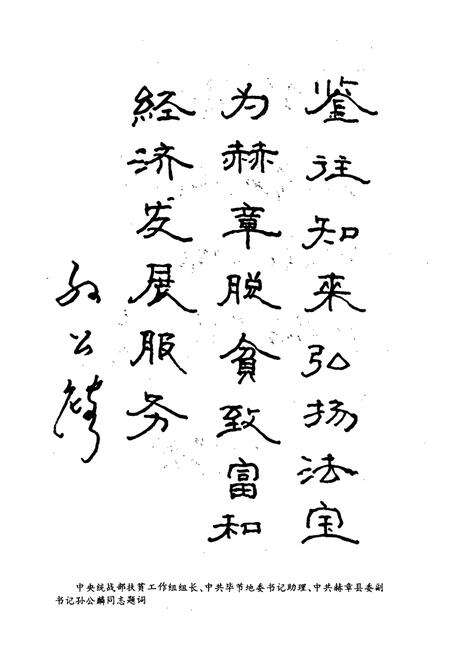 鉴往知来弘扬法宝
为赫章脱贫致富和
经济发展服务
孙公麟
中央统战部扶贫工作组组长、中共毕节地委书记助理、中共赫章县委副
书记孙公麟同志题词